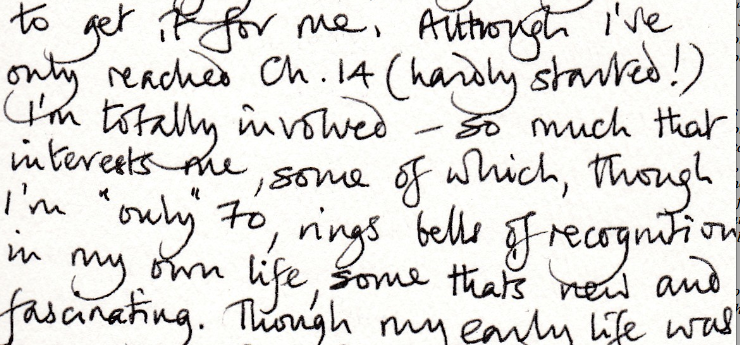 to get it for me. Although I've
only reached Ch.14 (hardly started!)
I'm totally involved – so much that
interests me, some of which, though
I'm "only" 70, rings bells of recognition
in my own life, some thats new and
fascinating. Though my early life was